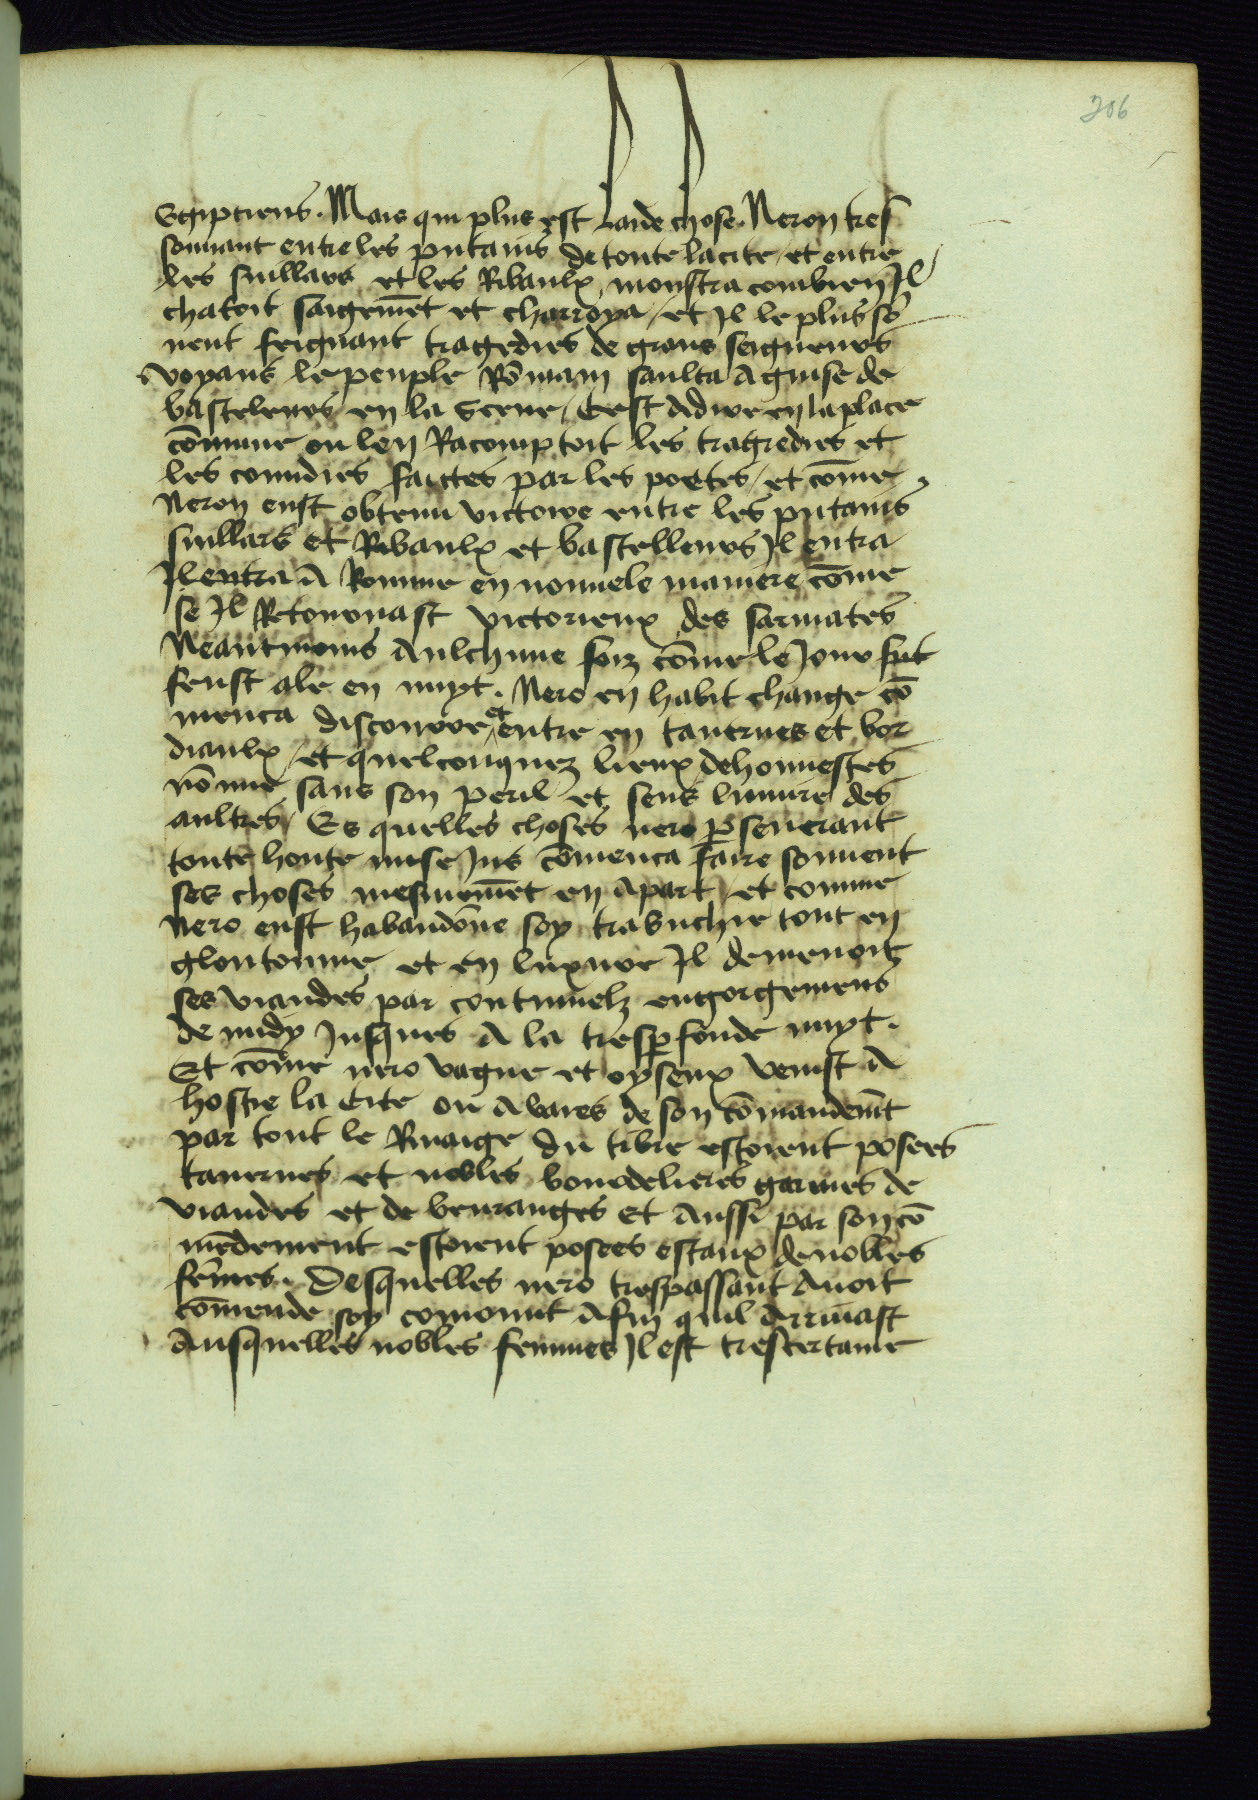 206
Egipciens. Mais qui plus est laide chose. Neron tres
souuant entre les putains de toute la cite / et entre
les suillars et les Ribaulx monstra combien Il
chatoit saigemēt et charroya / et Il le plus sō
uent feignant tragedies de grans seigneurs
voyans le peuple Rōmain saulta A guise de
basteleurs en la Scene / Cest Adire en la place
cōmune ou len Racomptoit les tragedies et
les comedies faictes par les poetes / et cōme
Neron eust obtenu victoire entre les putains
suillars et Ribaulx et bastelleurs Il entra
Il entra A Romme en nouuele maniere cōme
se Il Retournast victorieux des sarmates
Neantmoins Aulchune foiz cōme le Jour fut
feust ale en nuyt. Nero en habit change cō
menca discourre et entre en tauernes et bor
diaulx / et quelconquez lieux dehonnestes
nō mie sans son peril et sens liniure des
aultres / Es quelles choses nero p̄seuerant
toute honte mise Jus cōmenca faire souuent
ses choses mesmemēt en Apart / et comme
Nero eust habandōne soy trabuchie tout en
gloutonnie et en luxure Il demenoit
ses viandes par continuelz engorgemens
de midy Jusques A la tresp̄fonde nuyt.
Et cōme nero vague et oyseux venist A
hostie la Cite ou A baies de son cōmandemt
par tout le Riuaige du tibre estoient posees
tauernes et nobles bourdelieres garnies de
viandes et de beuranges Et Aussi par son cō
mēdement estoient posees estaux de nobles
fēmes. Desquelles nero trespassant Auoit
cōmende soy comouut Afin quil Arriuast
Ausquelles nobles femmes Il est trescertaine